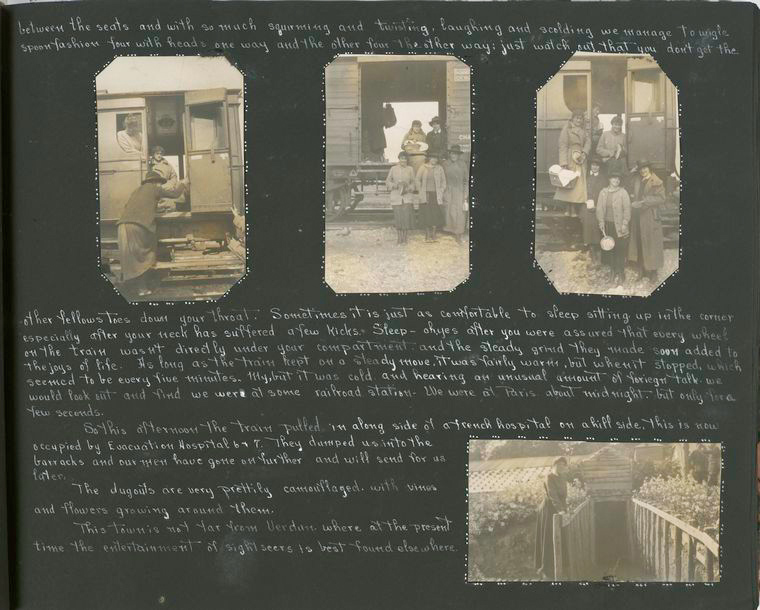 between the seats and with so much squirming and twisting, laughing and scolding we manage to wigle
spoonfashion four with heads one way and the other four the other way; just watch out that you don't get the
CHA
other fellows toes down your throat. Sometimes it is just as comfortable to sleep sitting up in the corner
especially after your neck has suffered a few kicks. Sleep - ohyes after you were assured that every wheel
on the train wasn't directly under your compartment and the steady grind they made soon added to
the joys of life. As long as the train kept on a steady move, it was fairly warm, but when it stopped, which
seemed to be every five minutes. My, but it was cold and hearing an unusual amount of foriegn talk we
would look out and find we were at some railroad station. We were at Paris about midnight, but only for a
few seconds.
So this afternoon the train pulled in along side of a french hospital on a hill side, this is now
occupied by Evacuation Hospital 6 + 7. They dumped us into the
barracks and our men have gone on further and will send for us
later.
The dugouts are very prettily camouflaged with vines
and flowers growing around them.
This town is not far from Verdun where at the present
time the entertainment of sightseers is best found elsewhere.